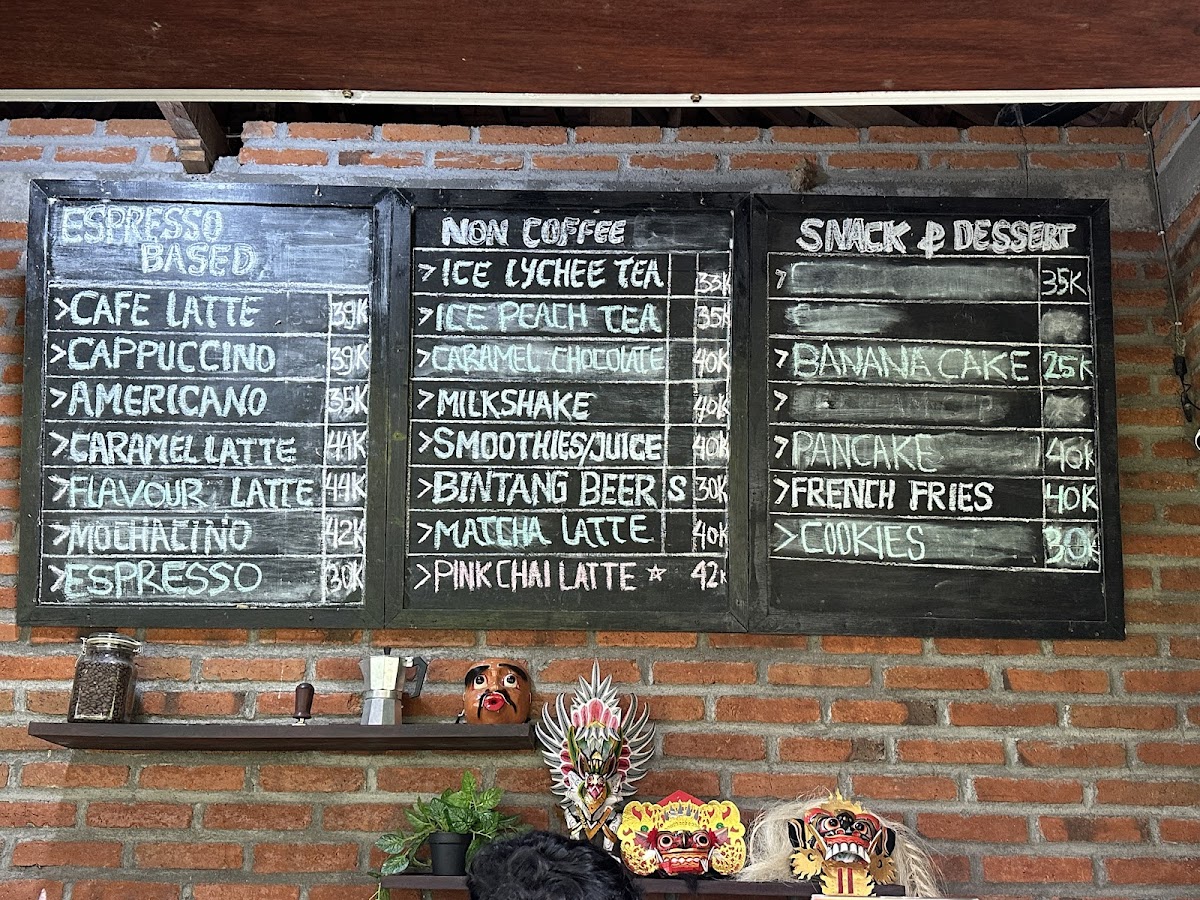 ESPRESSO
BASED
>CAFE LATTE 39K
>CAPPUCCINO 39K
>AMERICANO 35K
>CARAMEL LATTE 44K
>FLAVOUR LATTE 44K
>MOCHACINO 42K
>ESPRESSO 30K
NON COFFEE
>ICE LYCHEE TEA 33K
>ICE PEACH TEA 35K
>CARAMEL CHOCOLATE 40K
>MILKSHAKE 40K
>SMOOTHIES/JUICE 40K
>BINTANG BEER S 30K
>MATCHA LATTE 40K
>PINK CHAI LATTE ☆ 42K
SNACK & DESSERT
> 35K
>
>BANANA CAKE 25K
>
>PANCAKE 40K
>FRENCH FRIES 40K
>COOKIES 30K